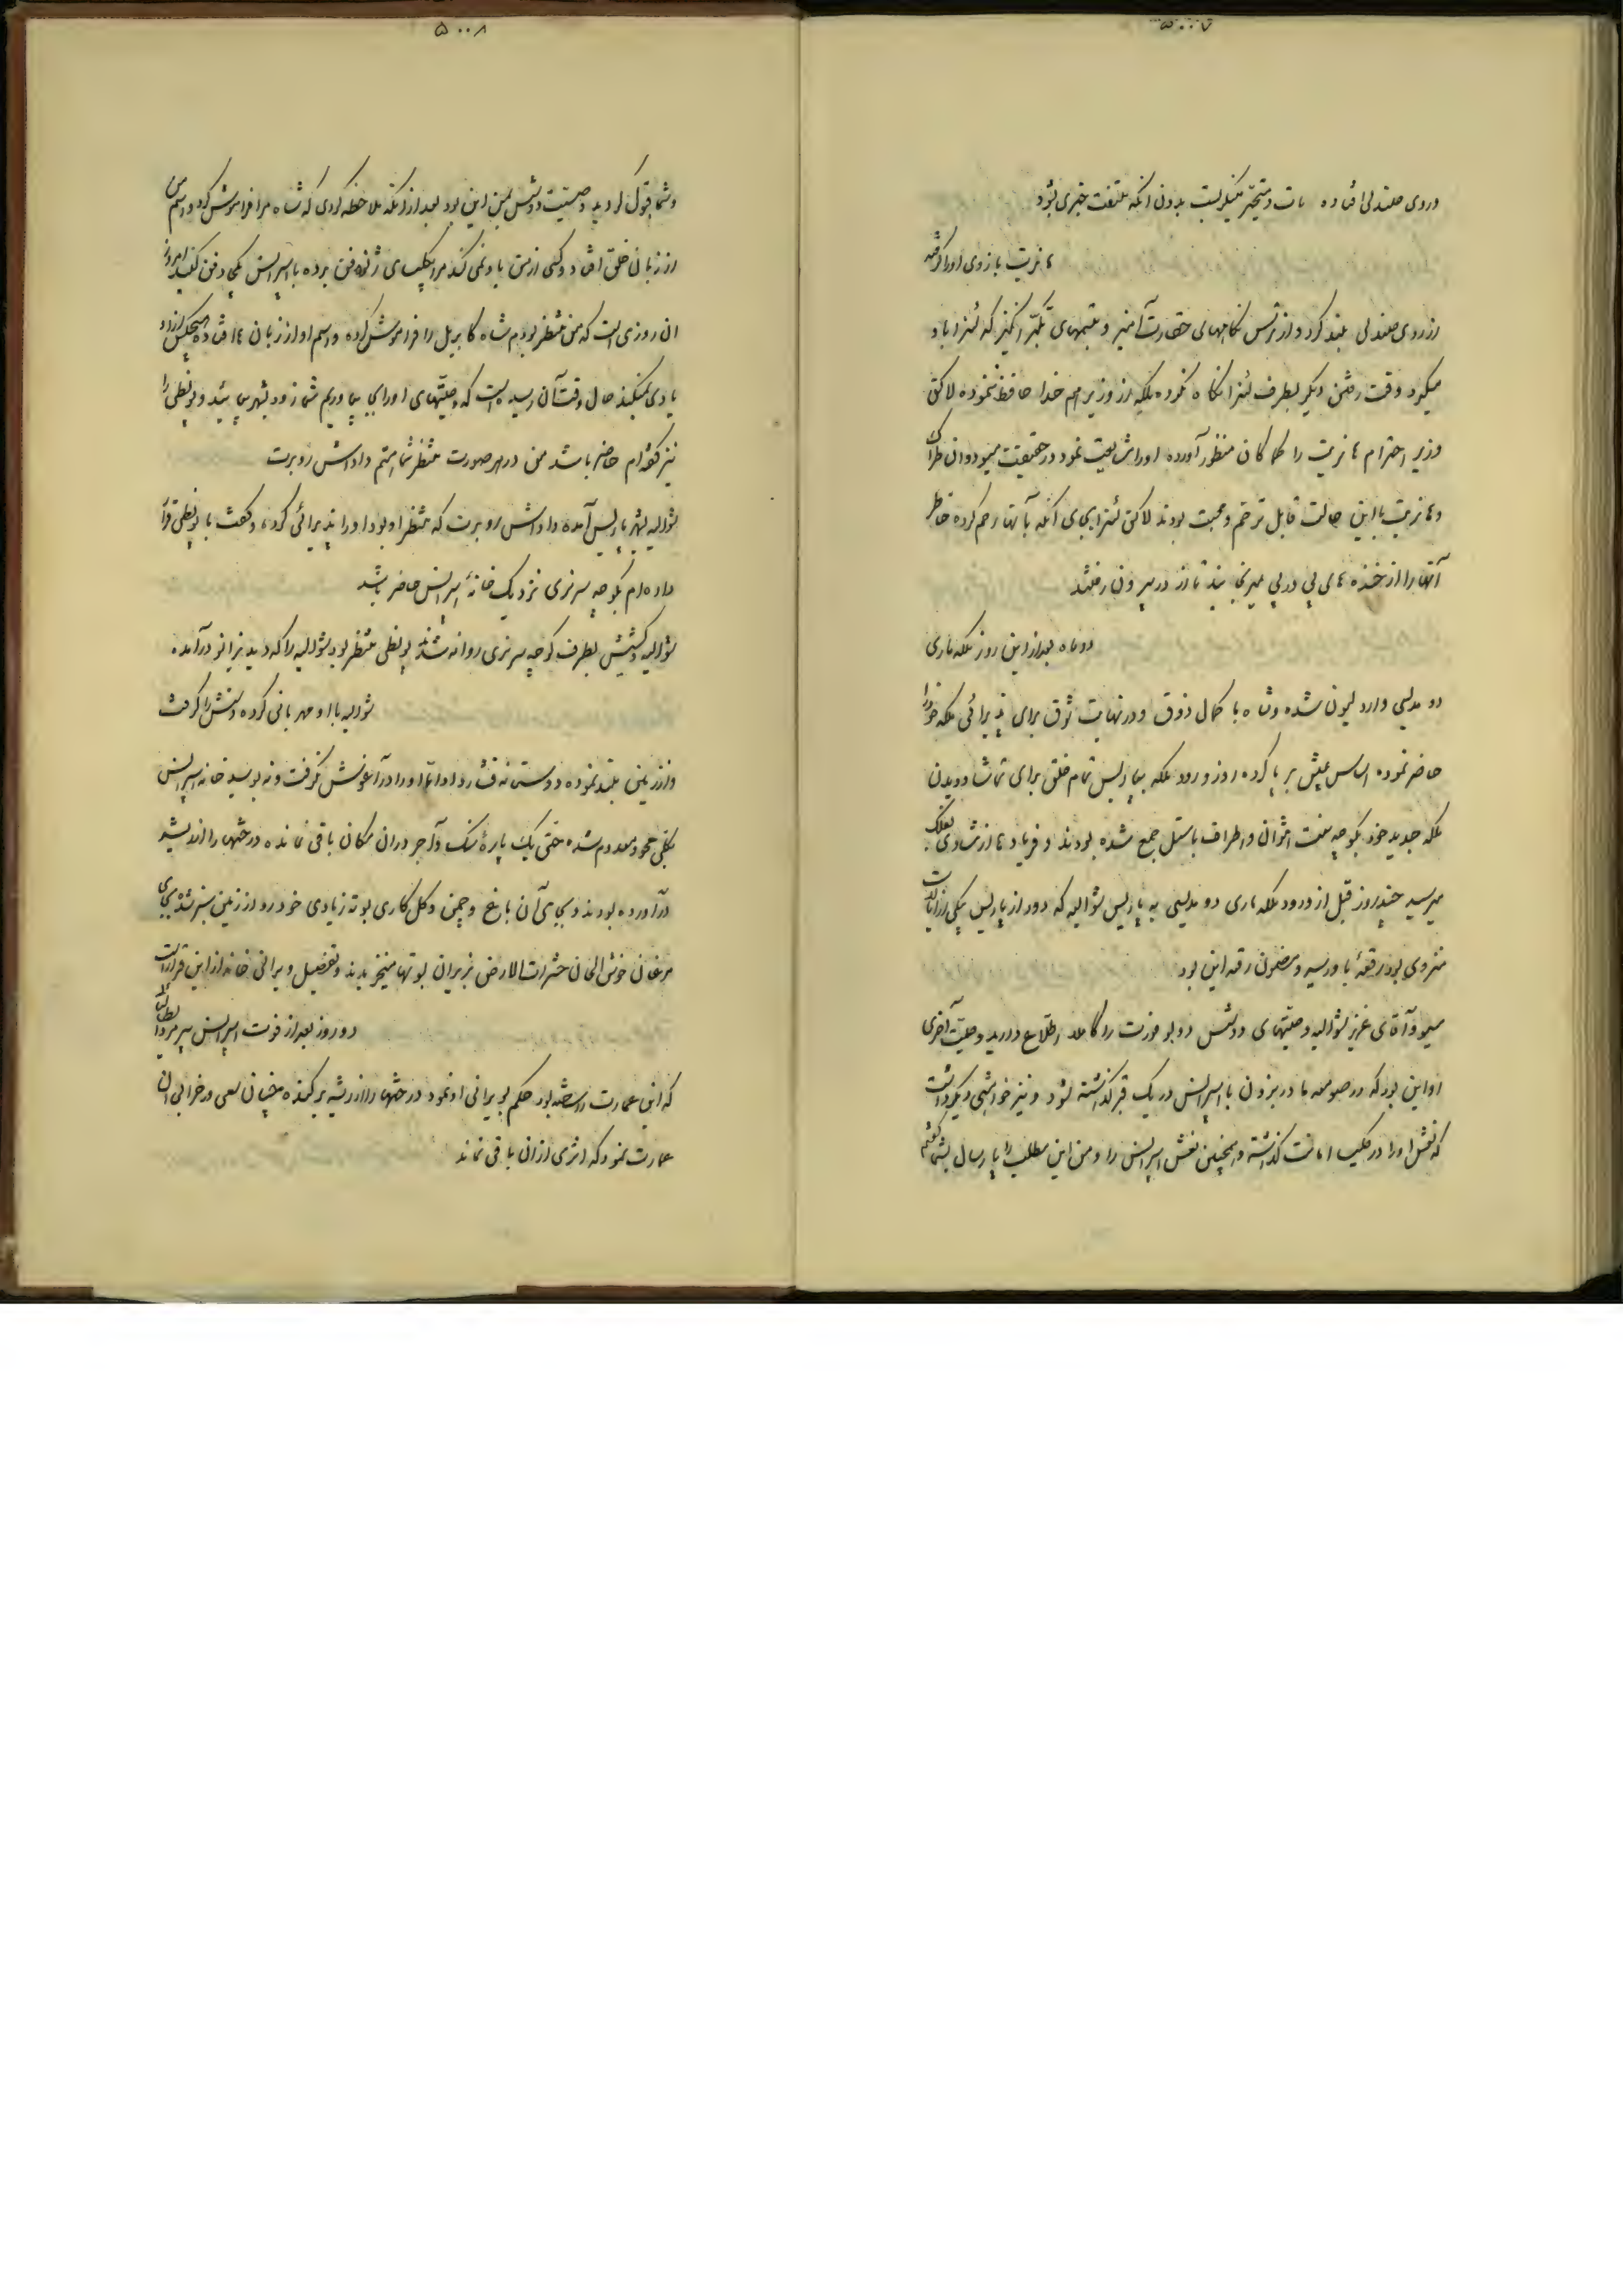 ۵۰۰۷
در روی صندلی افتاده مات و متحیر مینگریست بدون آنکه ملتفت چیزی بشود
هانریت بازوی او را گرفته
از روی صندلی بلند کرد و از ترس نگاههای حقارت آمیز و تبسمهای تکبر انگیز که لئنرا باو
میکرد وقت رفتن دیگر بطرف لئنرا نگاه نکرده بلکه از وزیر هم خدا حافظ ننموده لاکن
وزیر احترام هانریت را کما کان منظور آورده او را مشایعت نمود در حقیقت میسو دوان
و هانریت با این حالت قابل ترحم و محبت بودند لاکن لئنرا بجای آنکه بآنها رحم کرده خاطر
آنها را از خنده های پی در پی میرنجانید تا از در بیرون رفتند
دو ماه بعد از این روز ملکه ماری
دو مدلیسی وارد لیون شده و شاه با کمال ذوق و در نهایت شوق برای پذیرائی ملکه خود را
حاضر نموده اساس عیش بر پا کرده روز ورود ملکه بپاریس تمام خلق برای تماشا و دیدن
ملکه جدید خود بکوچه سنت انتوان و اطراف باستیل جمع شده بودند و فریادها از شادی بفلک
میرسید چند روز قبل از ورود ملکه ماری دو مدلیسی به پاریس شوالیه که دور از پاریس بیکی از ایالات
منزوی بود رقعهٔ باو رسید و مضمون رقعه این بود
میسو و آقای عزیز شوالیه وصیتهای دوشس دو بو فورت را کاملا اطلاع دارید وصیت آخری
او این بود که در صومعه ما در بزون با اسپرانس در یک قبر گذاشته شود و نیز خواهشی دیگر داشت
که نعش او را در کلیسا امانت گذاشته و همچنین نعش اسپرانس را و من این مطلب را پارسال بشما گفتم
۵۰۰۸
و شما قبول کردید وصیت دوشس بمن این بود بعد از آنکه ملاحظه کردی که شاه مرا فراموش کرد و اسم من
از زبان خلق افتاد و کسی از من یاد نمی کند مرا بکلیسای ژنوفن برده با اسپرانس یکجا دفن کنید امروز
آن روزی است که من منتظر بودم شاه گابریل را فراموش کرده و اسم او از زبان ها افتاده هیچکس از او
یادی نمیکند حال وقت آن رسیده است که وصیتهای او را بجا بیاوریم شما زود بشهر بیائید و پونطی را
نیز گفته ام حاضر باشد من در هر صورت منتظر شما هستم داداش روبرت
شوالیه بشهر پاریس آمده داداش روبرت که منتظر او بود او را پذیرائی کرده و گفت با پونطی قرار
داده ام بکوچه سرنزی نزدیک خانهٔ اسپرانس حاضر باشد
شوالیه و کشیش بطرف کوچه سرنزی روانه شدند پونطی منتظر بود شوالیه را که دید بزانو درآمده
شوالیه با او مهربانی کرده دستش را گرفت
و از زمین بلند نموده دوستانه فشار داد اما او را در آغوش نگرفت و نه بوسید خانه اسپرانس
بکلی محو و معدوم شده حتی یک پارهٔ سنگ و آجر در آن مکان باقی نمانده درختها را از ریشه
درآورده بودند و بجای آن باغ و چمن و گل کاری بوته زیادی خودرو از زمین سبز شده بجای
مرغان خوش الحان حشرات الارض بزیر آن بوته ها میخزیدند و تفصیل ویرانی خانه از این قرار است
دو روز بعد از فوت اسپرانس پیرمرد
که این عمارت را ساخته بود حکم بویرانی او نمود درختها را از ریشه برکنده چنان سعی در خرابی آن
عمارت نمود که اثری از آن باقی نماند